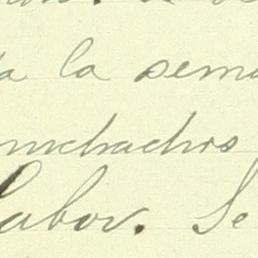 la sema
muchachos
Labor. Se